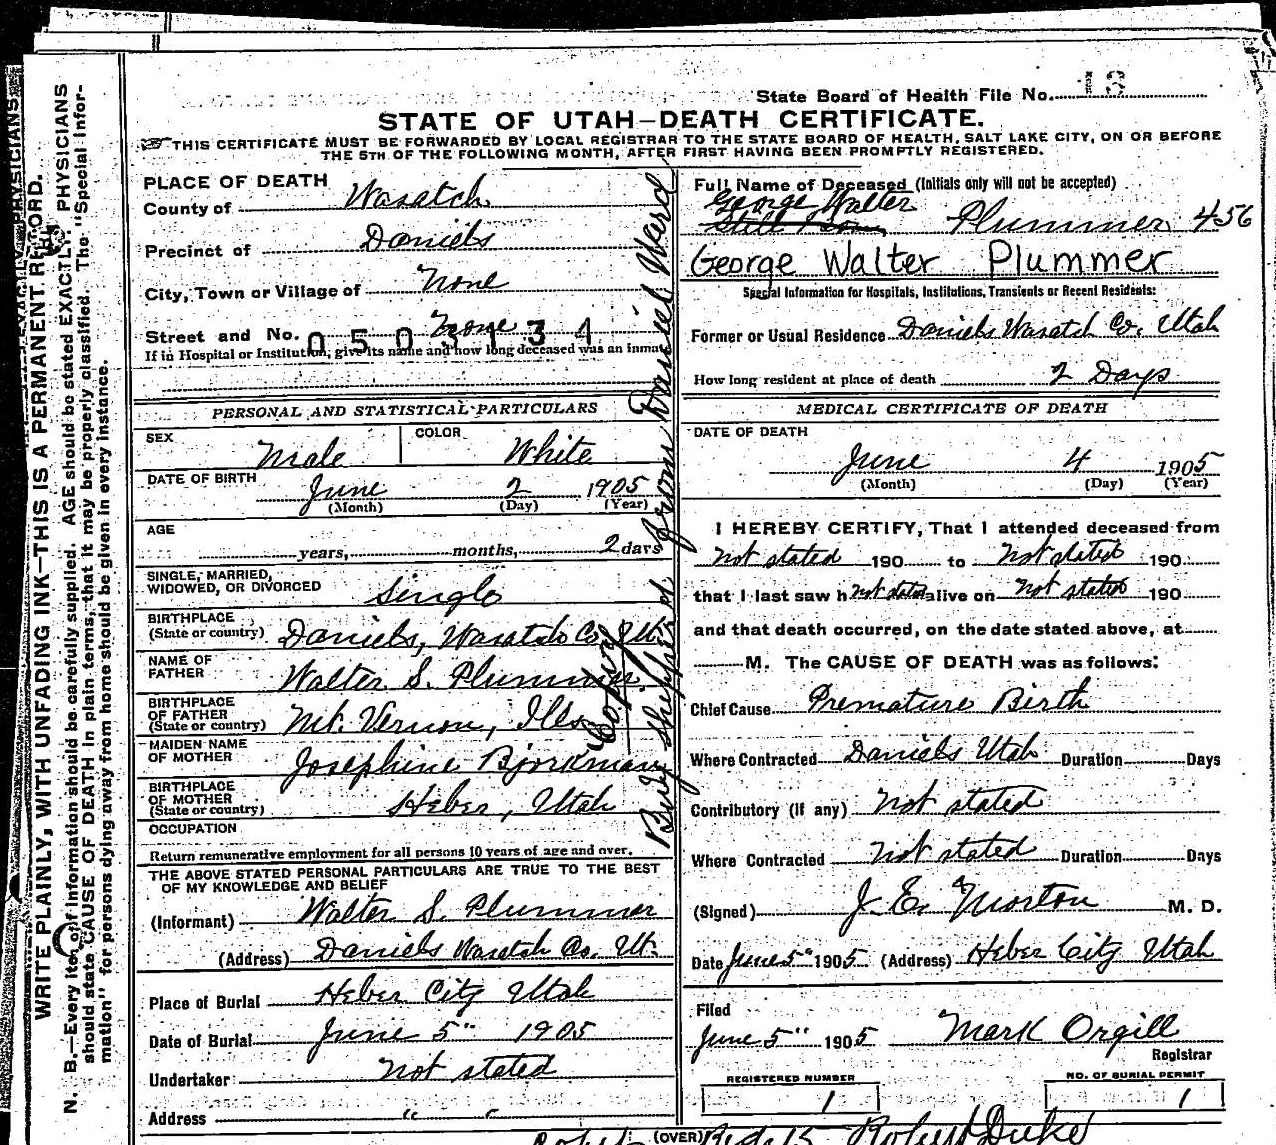 State Board of Health File No. 13
STATE OF UTAH—DEATH CERTIFICATE.
THIS CERTIFICATE MUST BE FORWARDED BY LOCAL REGISTRAR TO THE STATE BOARD OF HEALTH, SALT LAKE CITY, ON OR BEFORE
THE 5TH OF THE FOLLOWING MONTH, AFTER FIRST HAVING BEEN PROMPTLY REGISTERED.
PLACE OF DEATH
County of Wasatch
Precinct of Daniels
City, Town or Village of None
Street and No. None
0503134
If in Hospital or Institution, give its name and how long deceased was an inmate
PERSONAL AND STATISTICAL PARTICULARS
SEX Male COLOR White
DATE OF BIRTH June 2 1905
(Month) (Day) (Year)
AGE
years, months, 2 days
SINGLE, MARRIED,
WIDOWED, OR DIVORCED Single
BIRTHPLACE
(State or country) Daniels, Wasatch Co. Ut.
NAME OF
FATHER Walter S. Plummer
BIRTHPLACE
OF FATHER
(State or country) Mt. Vernon, Ills
MAIDEN NAME
OF MOTHER Josephine Bjorkman
BIRTHPLACE
OF MOTHER
(State or country) Heber, Utah
OCCUPATION
Return remunerative employment for all persons 10 years of age and over.
THE ABOVE STATED PERSONAL PARTICULARS ARE TRUE TO THE BEST
OF MY KNOWLEDGE AND BELIEF
(Informant) Walter S. Plummer
(Address) Daniels Wasatch Co. Ut.
Place of Burial Heber City Utah
Date of Burial June 5" 1905
Undertaker Not stated
Address " "
Full Name of Deceased (Initials only will not be accepted)
George Walter
Still Born Plummer 456
George Walter Plummer
Special Information for Hospitals, Institutions, Transients or Recent Residents:
Former or Usual Residence Daniels Wasatch Co. Utah
How long resident at place of death 2 Days
MEDICAL CERTIFICATE OF DEATH
DATE OF DEATH
June 4 1905
(Month) (Day) (Year)
I HEREBY CERTIFY, That I attended deceased from
Not stated 190 to Not stated 190
that I last saw h Not stated alive on Not stated 190
and that death occurred, on the date stated above, at
M. The CAUSE OF DEATH was as follows:
Chief Cause Premature Birth
Where Contracted Daniels Utah Duration Days
Contributory (if any) Not stated
Where Contracted Not stated Duration Days
(Signed) J. E. Morton M. D.
Date June 5" 1905 (Address) Heber City Utah
Filed
June 5" 1905 Mark Orgill
Registrar
REGISTERED NUMBER
1
NO. OF BURIAL PERMIT
1
(OVER)
Robert Duke
from Daniel Ward
Copy
WRITE PLAINLY, WITH UNFADING INK—THIS IS A PERMANENT RECORD.
N. B.—Every item of information should be carefully supplied. AGE should be stated EXACTLY. PHYSICIANS
should state CAUSE OF DEATH in plain terms, that it may be properly classified. The "Special Infor-
mation" for persons dying away from home should be given in every instance.